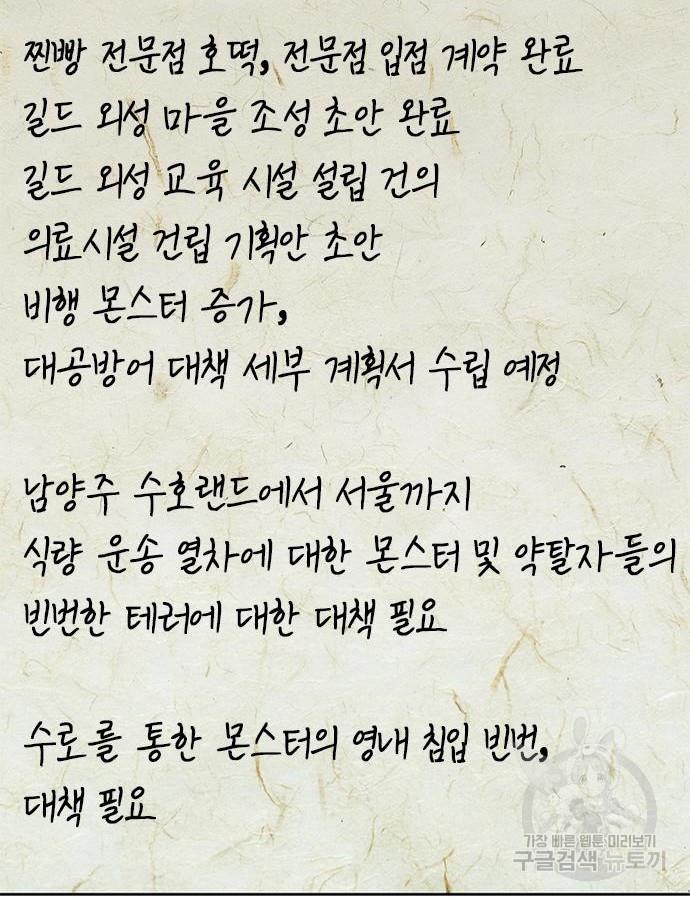 찐빵 전문점 호떡, 전문점 입점 계약 완료
길드 외성 마을 조성 초안 완료
길드 외성 교육 시설 설립 건의
의료시설 건립 기획안 초안
비행 몬스터 증가,
대공방어 대책 세부 계획서 수립 예정
남양주 수호랜드에서 서울까지
식량 운송 열차에 대한 몬스터 및 약탈자들의
빈번한 테러에 대한 대책 필요
수로를 통한 몬스터의 영내 침입 빈번,
대책 필요
가장 빠른 웹툰 미리보기
구글검색 뉴토끼